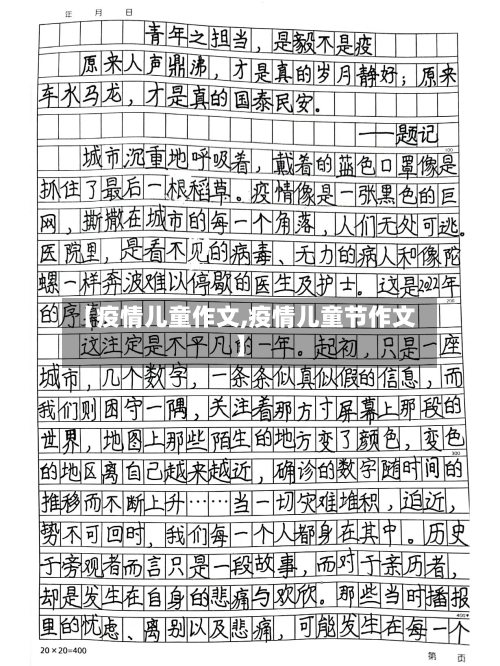 年 月 日
青年之担当，是毅不是疫
原来人声鼎沸，才是真的岁月静好；原来
车水马龙，才是真的国泰民安。
——题记
100
城市沉重地呼吸着，戴着的蓝色口罩像是
抓住了最后一根稻草。疫情像是一张黑色的巨
网，撕撒在城市的每一个角落，人们无处可逃。
医院里，是看不见的病毒、无力的病人和像陀
螺一样奔波难以停歇的医生及护士。这是2022年
200
的序
疫情儿童作文,疫情儿童节作文
这注定是不平凡的一年。起初，只是一座
城市，几个数字，一条条似真似假的信息，而
我们则困守一隅，关注着那方寸屏幕上那段的
世界，地图上那些陌生的地方变了颜色，变色
300
的地区离自己越来越近，确诊的数字随时间的
推移而不断上升……当一切灾难堆积，迫近，
势不可回时，我们每一个人都身在其中。历史
于旁观者而言只是一段故事，而对于亲历者，
却是发生在自身的悲痛与欢欣。那些当时播报
400
里的忧虑、离别以及悲痛，可能发生在每一个
20×20=400
第 页